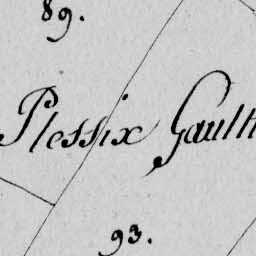 89.
Plessix Gaulti
93.